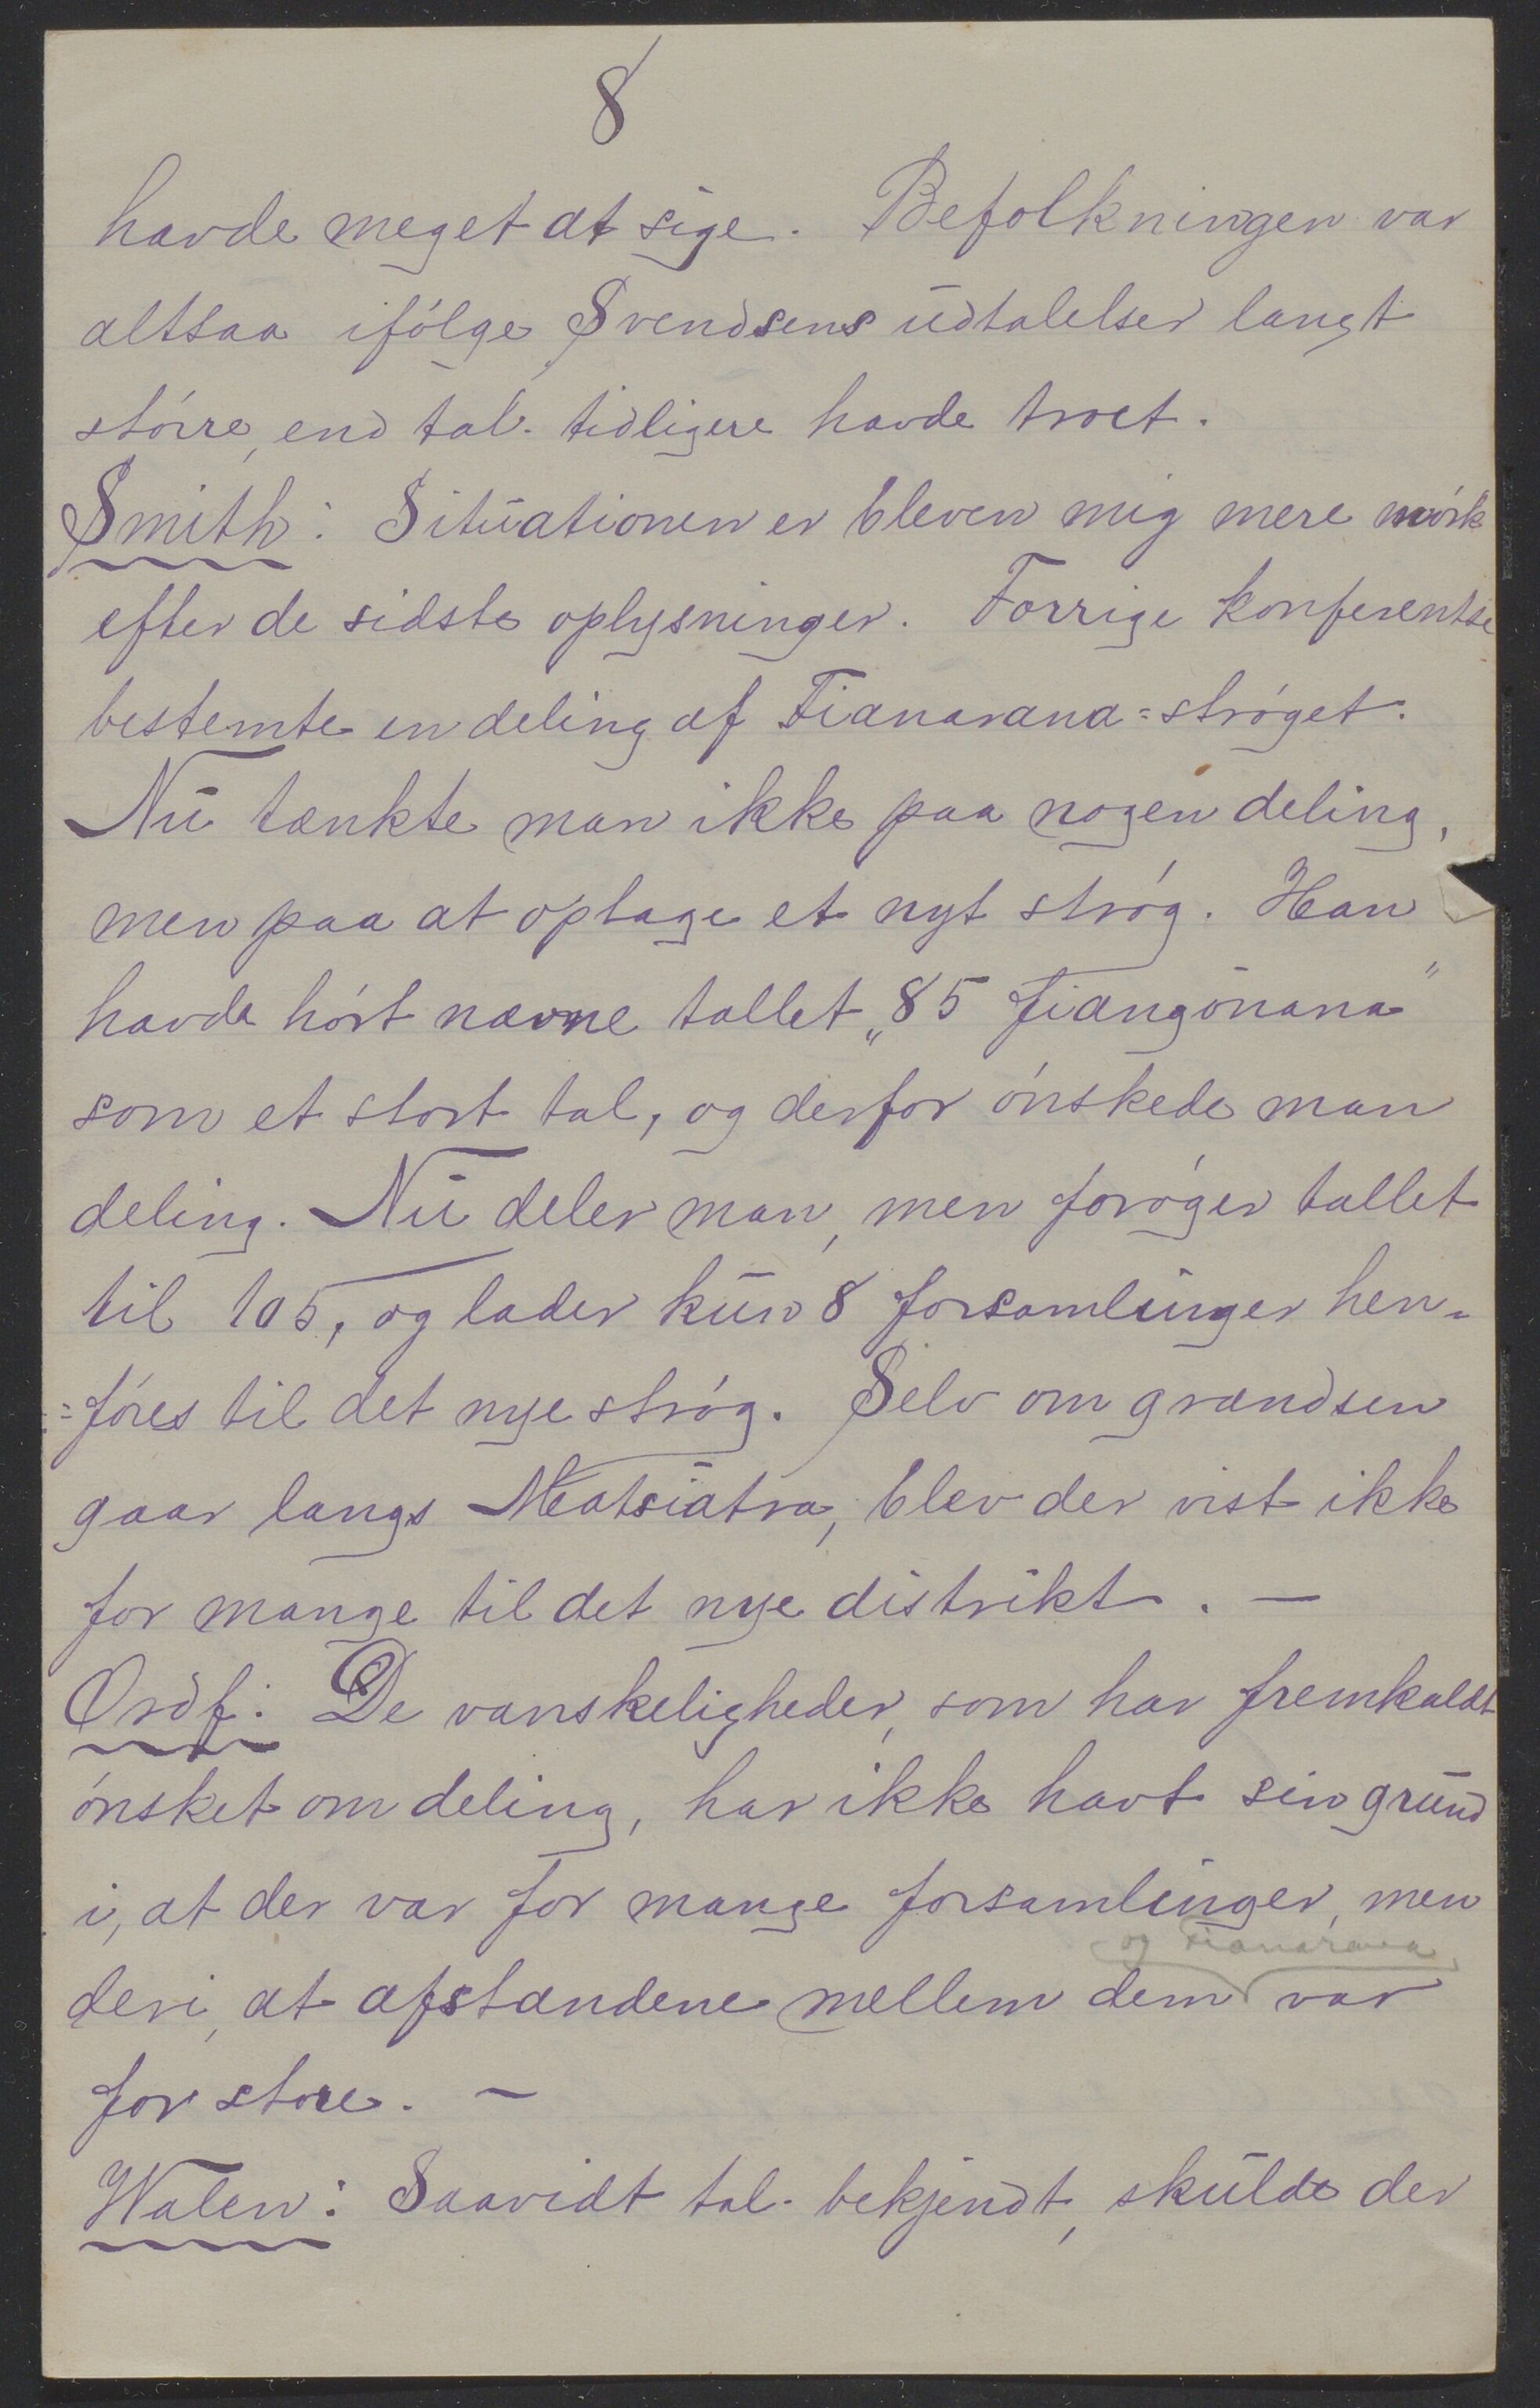 8
havde meget at sige. Befolkningen var
altsaa ifólge Svendsens udtalelser langt
stórre, end tal. tidligere havde troet.
Smith: Situationen er bleven mig mere mórk
efter de sidste oplysninger. Forrige konferentse
bestemte en deling af Fianarana=stróget.
Nu tænkte man ikke paa nogen deling,
men paa at optage et nyt stróg. Han
havde hórt nævne tallet „85 fiangonana"
som et stort tal, og derfor ónskede man
deling. Nu deler man, men foróger tallet
til 105, og lader kun 8 forsamlinger hen=
=fóres til det nye stróg. Selv om grændsen
gaar langs Matsiatra, blev der vist ikke
for mange til det nye distrikt. —
Ordf: De vanskeligheder, som har fremkaldt
ónsket om deling, har ikke havt sin grund
i, at der var for mange forsamlinger, men
og Fianarana
deri, at afstandene mellem dem var
for store. —
Walen: Saavidt tal. bekjendt, skulde der